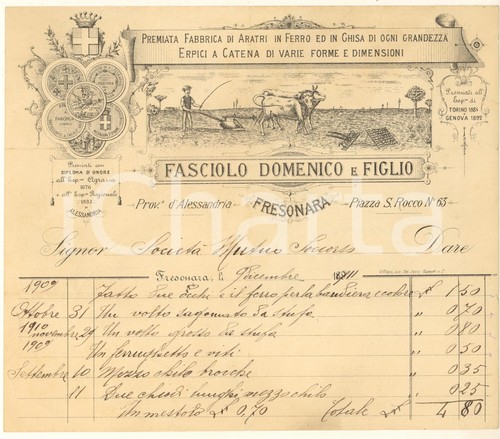 Premiata Fabbrica di Aratri in Ferro ed in Ghisa di ogni grandezza
Erpici a Catena di varie forme e dimensioni
Premiati con
DIPLOMA D'ONORE
all'Esp.ne Agraria
1876
e all'Esp.ne Regionale
1883
ALESSANDRIA
Premiati all'
Esp.ne di
TORINO 1884
GENOVA 1892
FASCIOLO DOMENICO E FIGLIO
Prov.a d'Alessandria
FRESONARA
Piazza S. Rocco N° 63
Signor Società Mutuo Soccorso Dare
Fresonara, li Dicembre 1911
1909 Fatto due occhi e il ferro per la bandiera £ 1 50
Ottobre 31 Un volto sagomato da stufa " 0 70
1910
novembre 29 Un volto grosso da stufa " 0 80
1909 Un ferrughetto e viti " 0 50
Settembre 10 Mezzo chilo brocche " 0 35
11 Due chiodi lunghi mezzo chilo " 0 25
Un mestolo £ 0,70 Totale £ 4 80